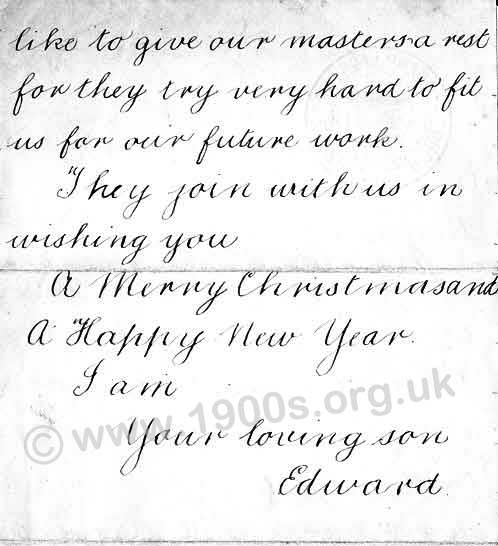 like to give our masters a rest
for they try very hard to fit
us for our future work.
They join with us in
wishing you
A Merry Christmas and
A Happy New Year.
I am
© www.1900s.org.uk
Your loving son
Edward.